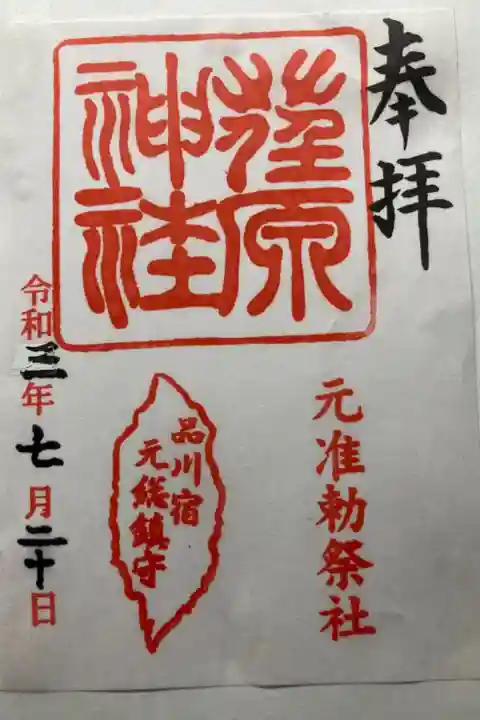 奉拝
荏原
神社
元准勅祭社
品川宿
元総鎮守
令和三年七月二十日